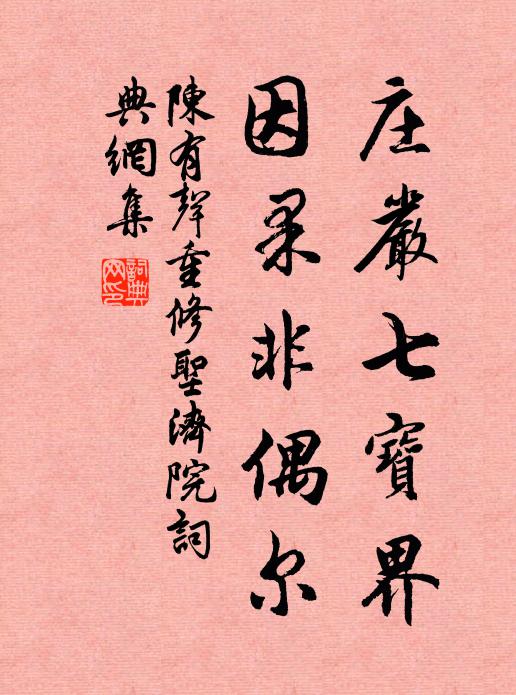 庄嚴七寶界
因果非偶尔
陳有聲重修聖濟院詞
典網集
詞典网印